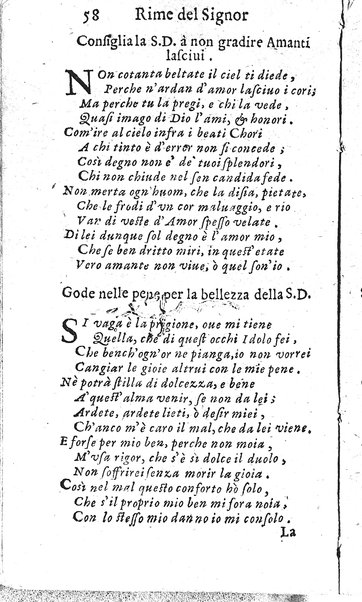 58 Rime del Signor
Consiglia la S.D. à non gradire Amanti
lasciui.
NOn cotanta beltate il ciel ti diede,
Perche n'ardan d'amor lasciuo i cori;
Ma perche tu la pregi, e chi la vede,
Quasi imago di Dio l'ami, & honori.
Com'ire al cielo infra i beati Chori
A chi tinto è d'error non si concede;
Così degno non è de' tuoi splendori,
Chi non chiude nel sen candida fede.
Non merta ogn'huom, che la disia, pietate,
Che le frodi d'vn cor maluaggio, e rio
Van di veste d'Amor spesso velate.
Di lei dunque sol degno è l'amor mio,
Che se ben dritto miri, in quest'etate
Vero amante non viue, ò quel son'io.
Gode nelle pene per la bellezza della S.D.
SI vaga è la prigione, oue mi tiene
Quella, che di quest occhi Idolo fei,
Che bench'ogn'or ne pianga, io non vorrei
Cangiar le gioie altrui con le mie pene.
Nè potrà stilla di dolcezza, e bene
A quest'alma venir, se non da lei;
Ardete, ardete lieti, ò desir miei,
Ch'anco m'è caro il mal, che da lei viene.
E forse per mio ben, perche non moia,
M'vsa rigor, che s'è sì dolce il duolo,
Non soffrirei senza morir la gioia.
Così nel mal questo conforto hò solo,
Che s'il proprio mio ben mi fora noia,
Con lo stesso mio danno io mi consolo.
La